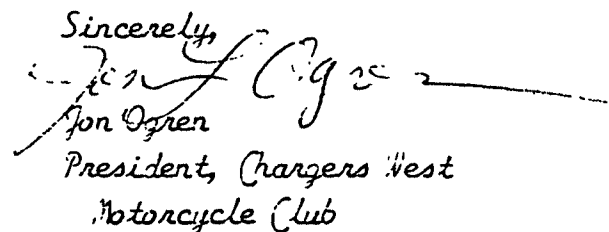 Sincerely,
Jon L Ogren
Jon Ogren
President, Chargers West
Motorcycle Club